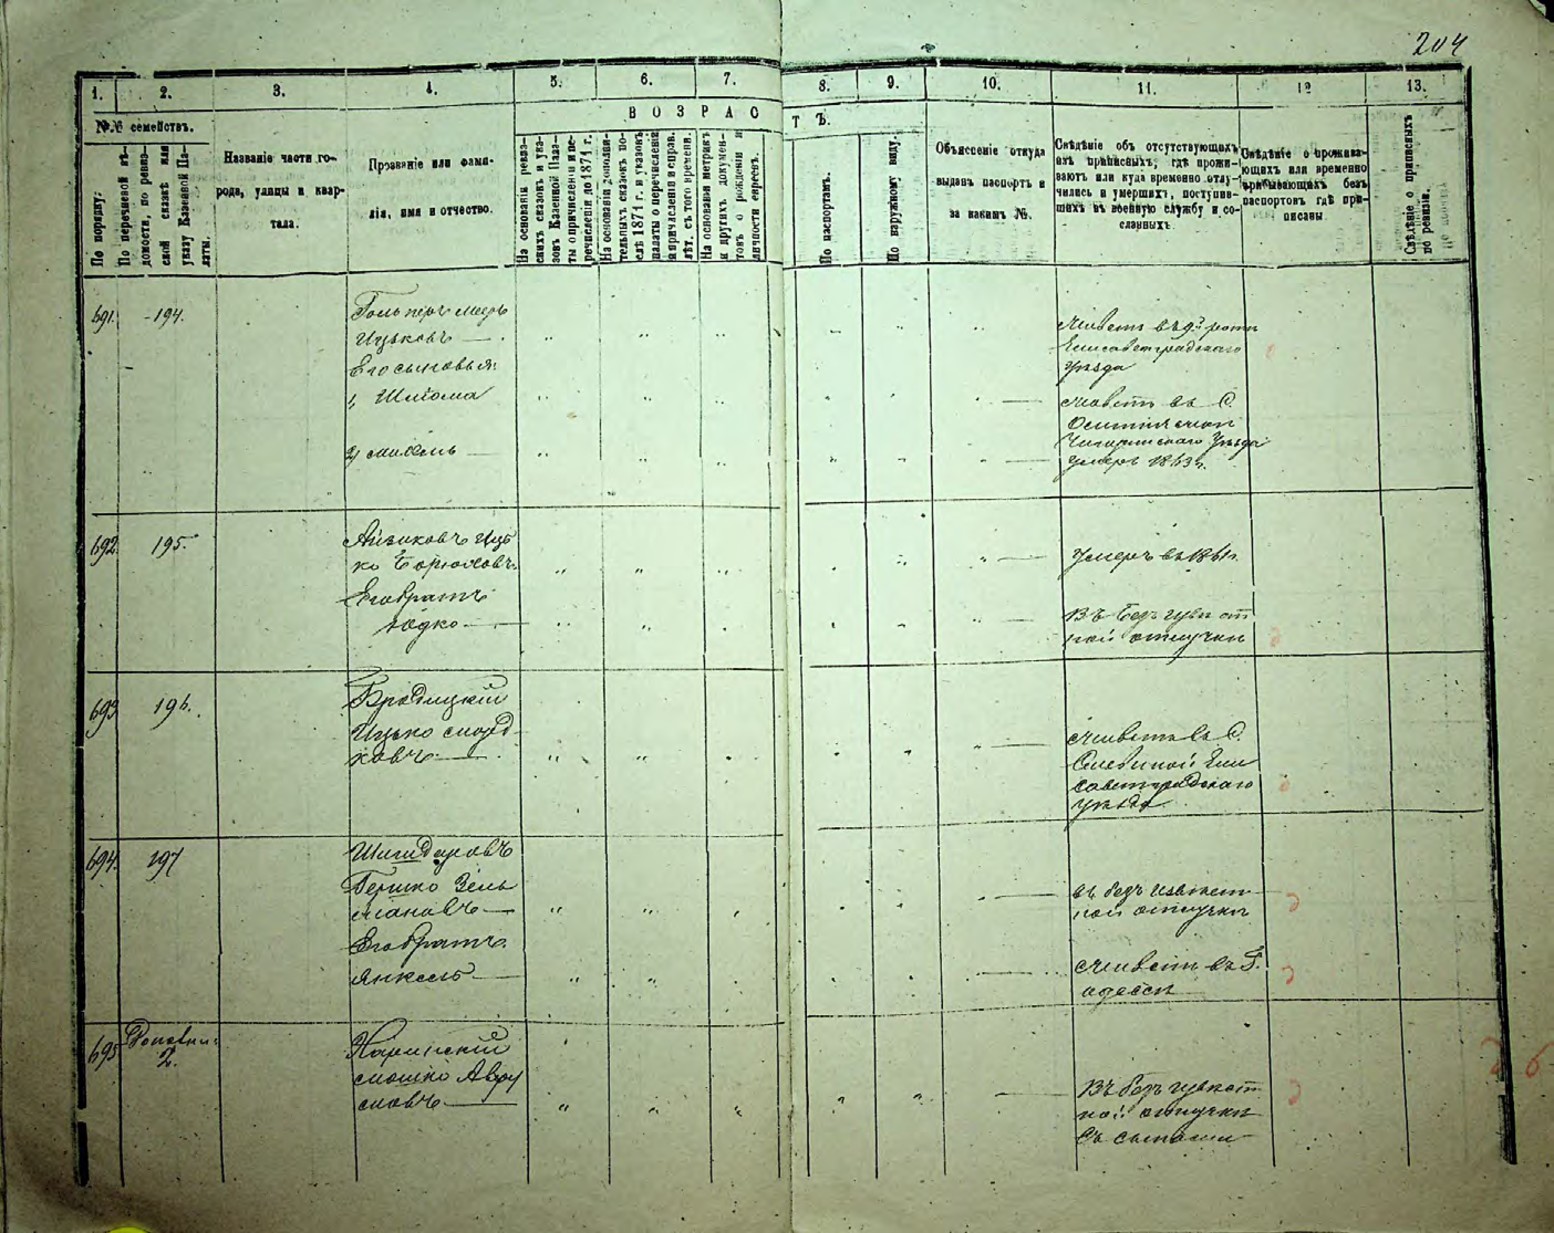 204
1. 2. 3. 4. 5. 6. 7. 8. 9. 10. 11. 12 13.
В О З Р А С Т Ъ.
№№ семействъ.
По порядку.
По перечневой вѣ-
домости, по ревиз-
ской сказкѣ или
указу Казенной Па-
латы.
Названіе части го-
рода, улицы и квар-
тала.
Прозваніе или фами-
лія, имя и отчество.
На основаніи ревиз-
скихъ сказокъ и ука-
зовъ Казенной Пала-
ты о причисленіи и пе-
речисленіи до 1871 г.
На основаніи дополни-
тельныхъ сказокъ по-
слѣ 1871 г. и указовъ
палаты о перечисленіи
и причисленіи и справ.
лѣт. съ того времени.
На основаніи метрикъ
и другихъ докумен-
товъ о рожденіи и
личности евреевъ.
По паспортамъ.
По наружному виду.
Объясненіе откуда
выданъ паспортъ и
за какимъ №.
Свѣдѣніе объ отсутствующихъ
изъ приписныхъ, гдѣ прожи-
ваютъ или куда временно отлу-
чились и умершихъ, поступив-
шихъ въ военную службу и со-
сланныхъ.
Свѣдѣніе о прожива-
ющихъ или временно
прибывающихъ безъ
паспортовъ гдѣ при-
писаны.
Свѣдѣніе о приписныхъ
по ревизіи.
691. 194.
Ицьковъ
Его сыновья:
1, Шліома
Живетъ въ
Елисаветградскаго
Уѣзда
Живетъ въ С.
Чигиринскаго Уѣзда
2,
Умеръ 1863 г.
692. 195.
Айзиковъ Иць
ко Борюховъ.
Умеръ въ 1861 г.
Его братъ
Іодко
Въ безъ извѣст
ной отлучки
693 196.
Ицько Морд
ковъ
Живетъ въ С.
Ели
саветградскаго
Уѣзда
694. 197
Гершко Зель
мановъ
въ безъ извѣст
ной отлучкѣ
Его братъ
Янкель
Живетъ въ Г.
Адессѣ
695
2.
Мошко Авру
мовъ
Въ безъ извѣст
ной отлучки